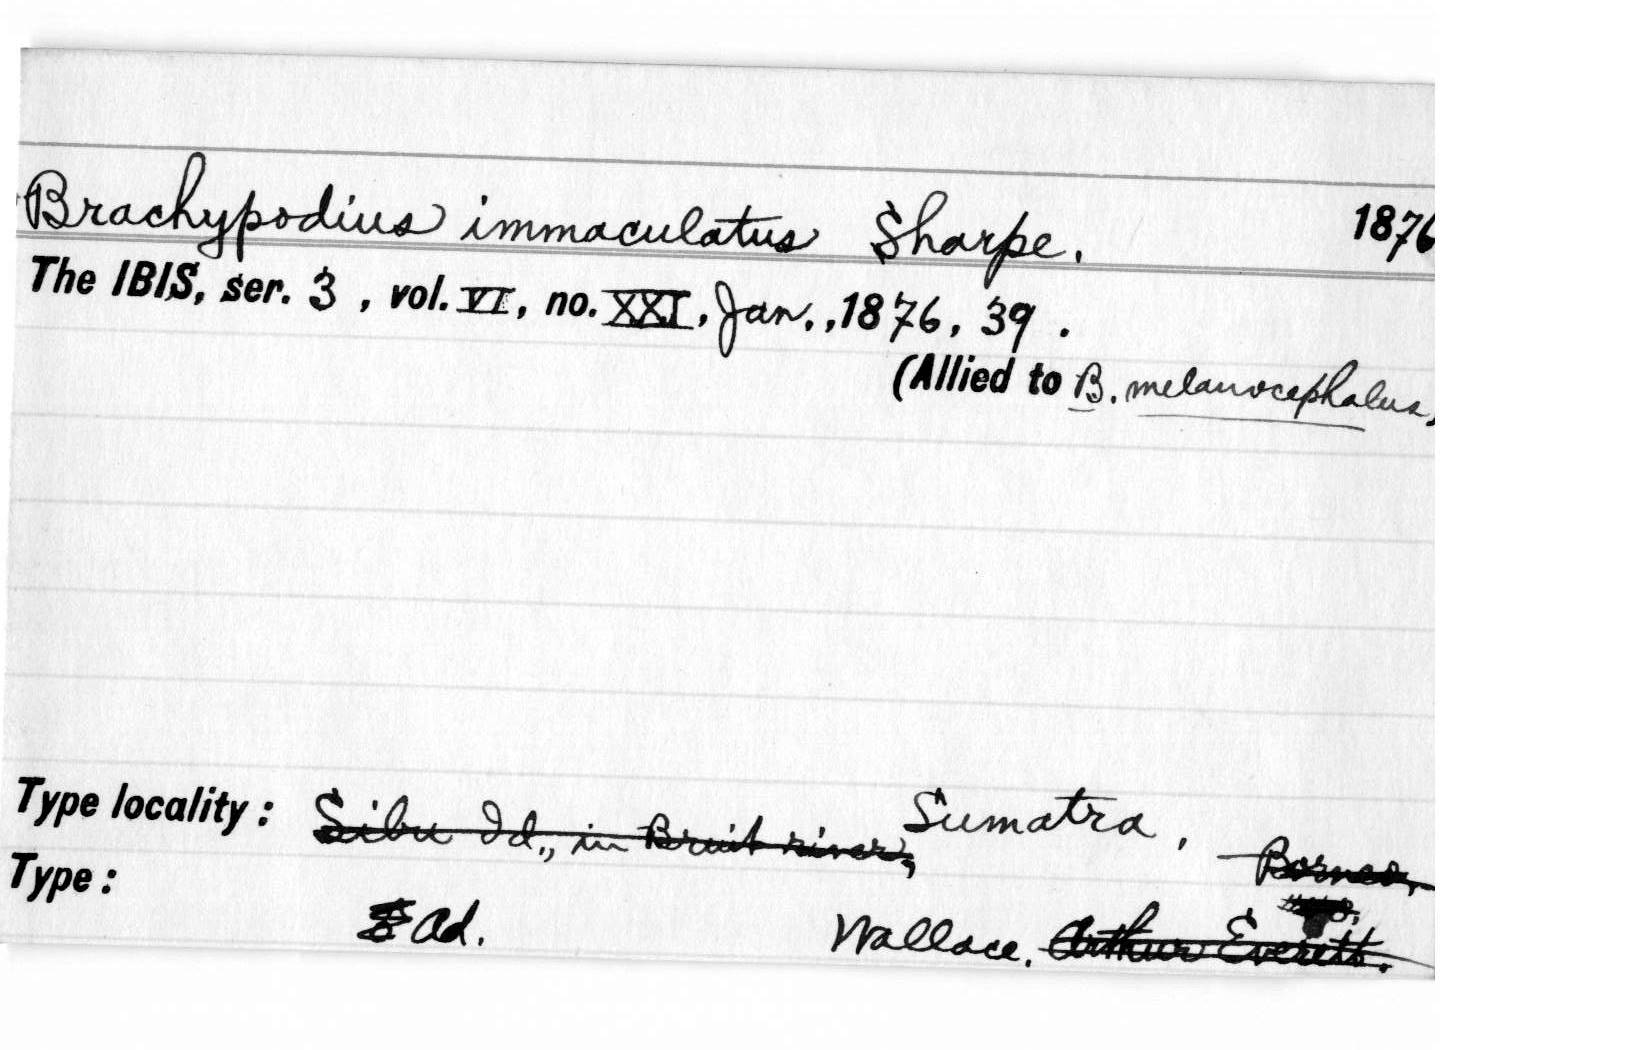 Brachypodius immaculatus Sharpe. 1876
The IBIS, ser. 3, vol. VI, no. XXI, Jan., 1876, 39.
(Allied to B. melanocephalus)
Type locality: Sibu Id., in Bruit river, Sumatra, Borneo,
Type:
ad. Wallace. Arthur Everett.